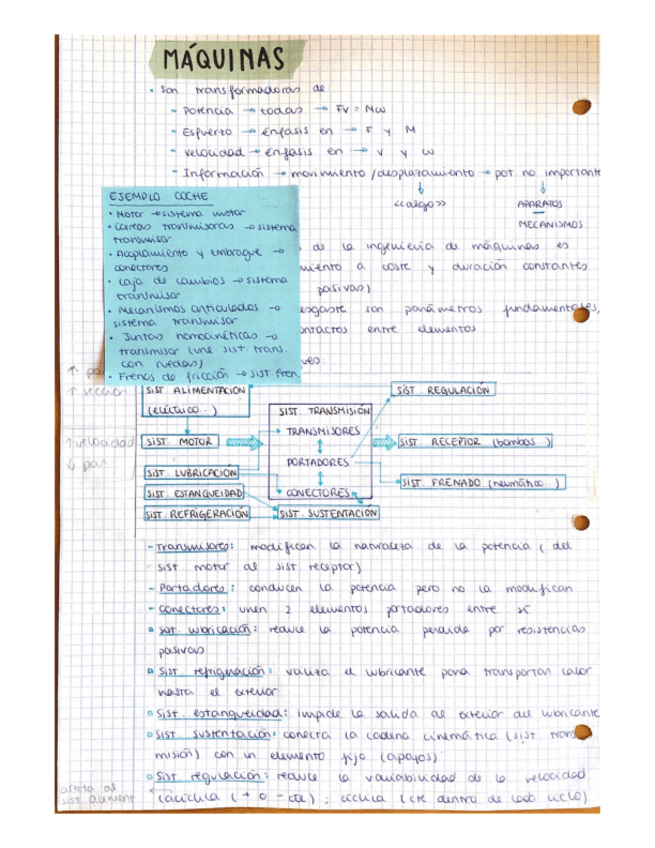 MÁQUINAS
• Son transformadoras de
- Potencia → todas → Fv = Mω
- Esfuerzo → énfasis en → F y M
- Velocidad → énfasis en → v y ω
- Información → movimiento/desplazamiento → pot no importante
<<algo>> APARATOS
MECANISMOS
EJEMPLO COCHE
• Motor → sistema motor
• Correas transmisoras → sistema
transmisor
• Acoplamiento y embrague →
conectores
• Caja de cambios → sistema
transmisor
• Mecanismos articulados →
sistema transmisor
• Juntas homocinéticas →
transmisor (une sist. trans.
con ruedas)
• Frenos de fricción → sist fren.
de la ingeniería de máquinas es
miento a coste y duración constantes
pasivas)
esgaste son parámetros fundamentales,
ontactos entre elementos
ves:
↑ sección
↑ velocidad
↓ par
SIST. ALIMENTACIÓN
(eléctrico..)
SIST. MOTOR
SIST. LUBRICACIÓN
SIST. ESTANQUEIDAD
SIST. REFRIGERACIÓN
SIST. TRANSMISIÓN
TRANSMISORES
PORTADORES
CONECTORES
SIST. SUSTENTACIÓN
SIST. REGULACIÓN
SIST. RECEPTOR (bombas..)
SIST. FRENADO (neumático...)
- Transmisores: modifican la naturaleza de la potencia (del
sist motor al sist receptor)
- Portadores: conducen la potencia pero no la modifican
- Conectores: unen 2 elementos portadores entre sí
Sist. lubricación: reduce la potencia perdida por resistencias
pasivas
Sist. refrigeración: utiliza el lubricante para transportar calor
hasta el exterior
Sist. estanqueidad: impide la salida al exterior del lubricante
Sist. sustentación: conecta la cadena cinemática (sist. trans
misión) con un elemento fijo (apoyos)
Sist regulación: reduce la variabilidad de la velocidad
(acíclica (+ o - cte); cíclica (cte dentro de cada ciclo)
afecta al
sist aliment